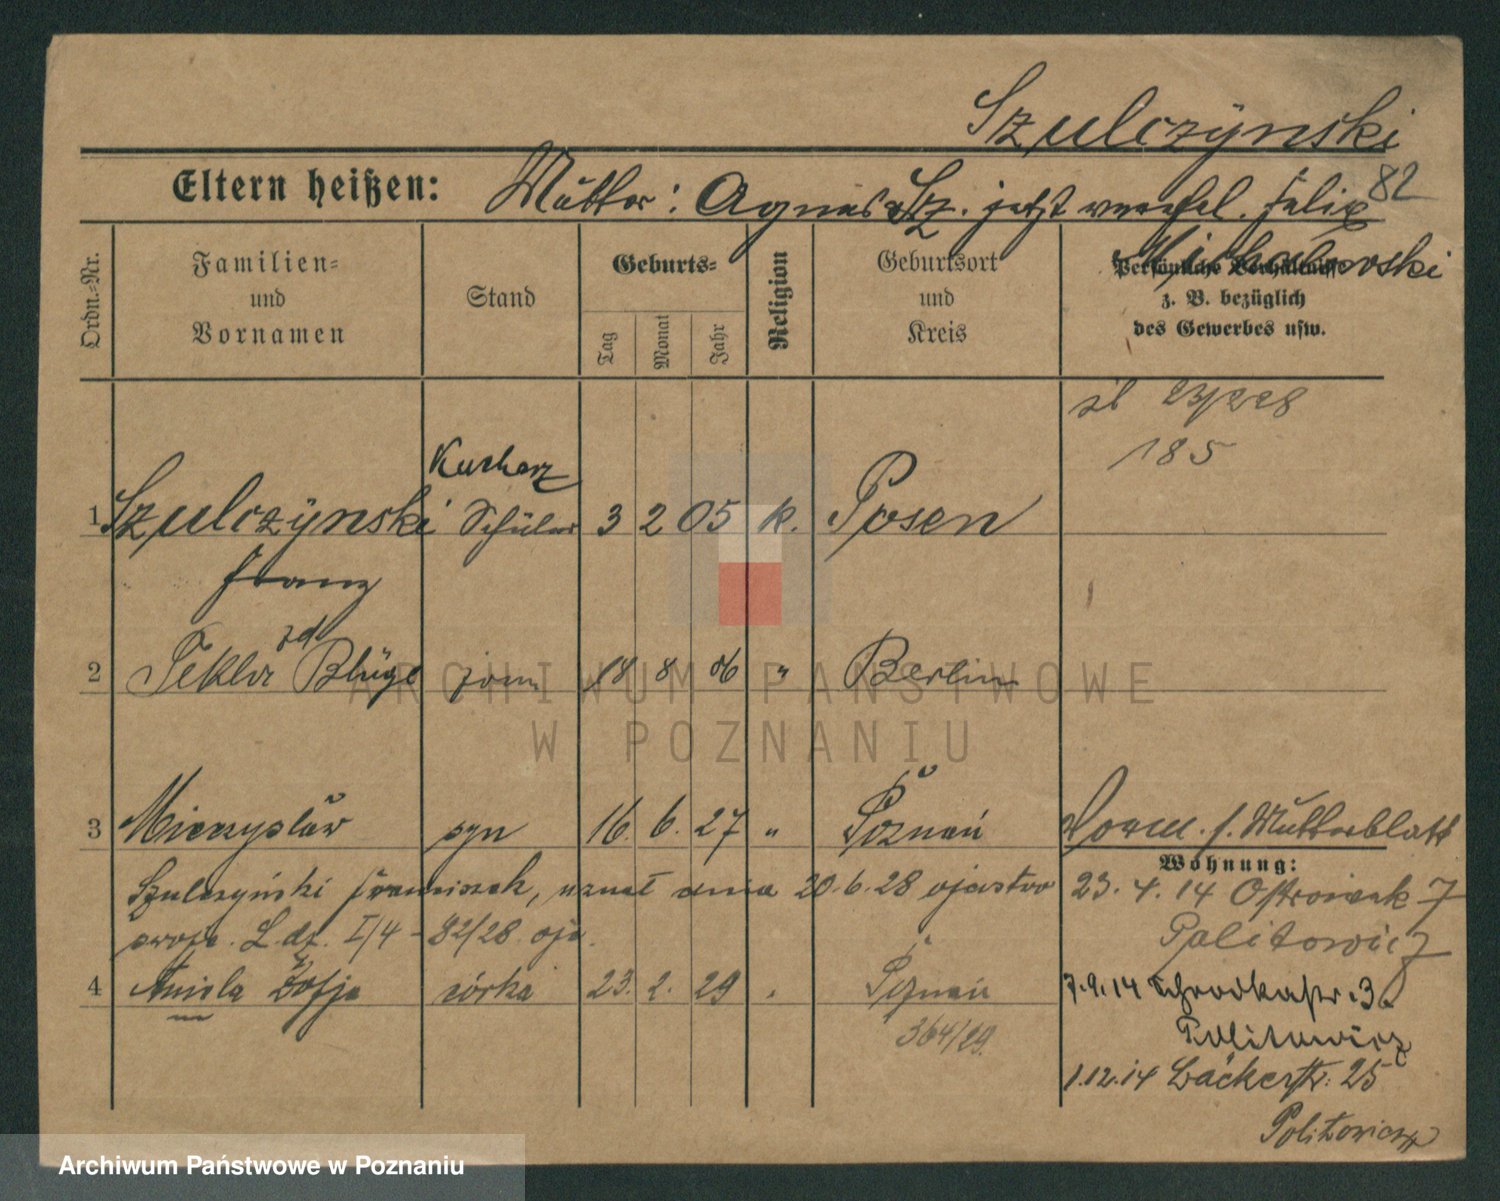 Szulczÿnski
82
Eltern heißen: Mutter: Agnes Sz. jetzt verehel. Felix
Michalowski
Ordn.-Nr.
Familien-
und
Vornamen
Stand
Geburts-
Tag
Monat
Jahr
Religion
Geburtsort
und
Kreis
Persönliche Verhältnisse
z. B. bezüglich
des Gewerbes usw.
185
Kucharz
1 Szulczÿnski Schüler 3 2 05 k. Posen
Franz
zd
2 Tekla Blüge żona 18 8 06 " Berlin
3 Mieczysław syn 16. 6. 27 " Poznań
Vorm. s. Mutterblatt
Wohnung:
Szulczyński Franciszek, uznał dnia 20.6.28 ojcostwo
23.4.14 Ostrowek 7
L.dz. I/4 - 82/28
Politowicz
4 Aniela Zofja córka 23. 2. 29 " Poznań
364/29.
7.9.14 Schrodkastr. 3
Politowicz
1.12.14 Bäckerstr. 25
Politowicz
ARCHIWUM PAŃSTWOWE
W POZNANIU
Archiwum Państwowe w Poznaniu